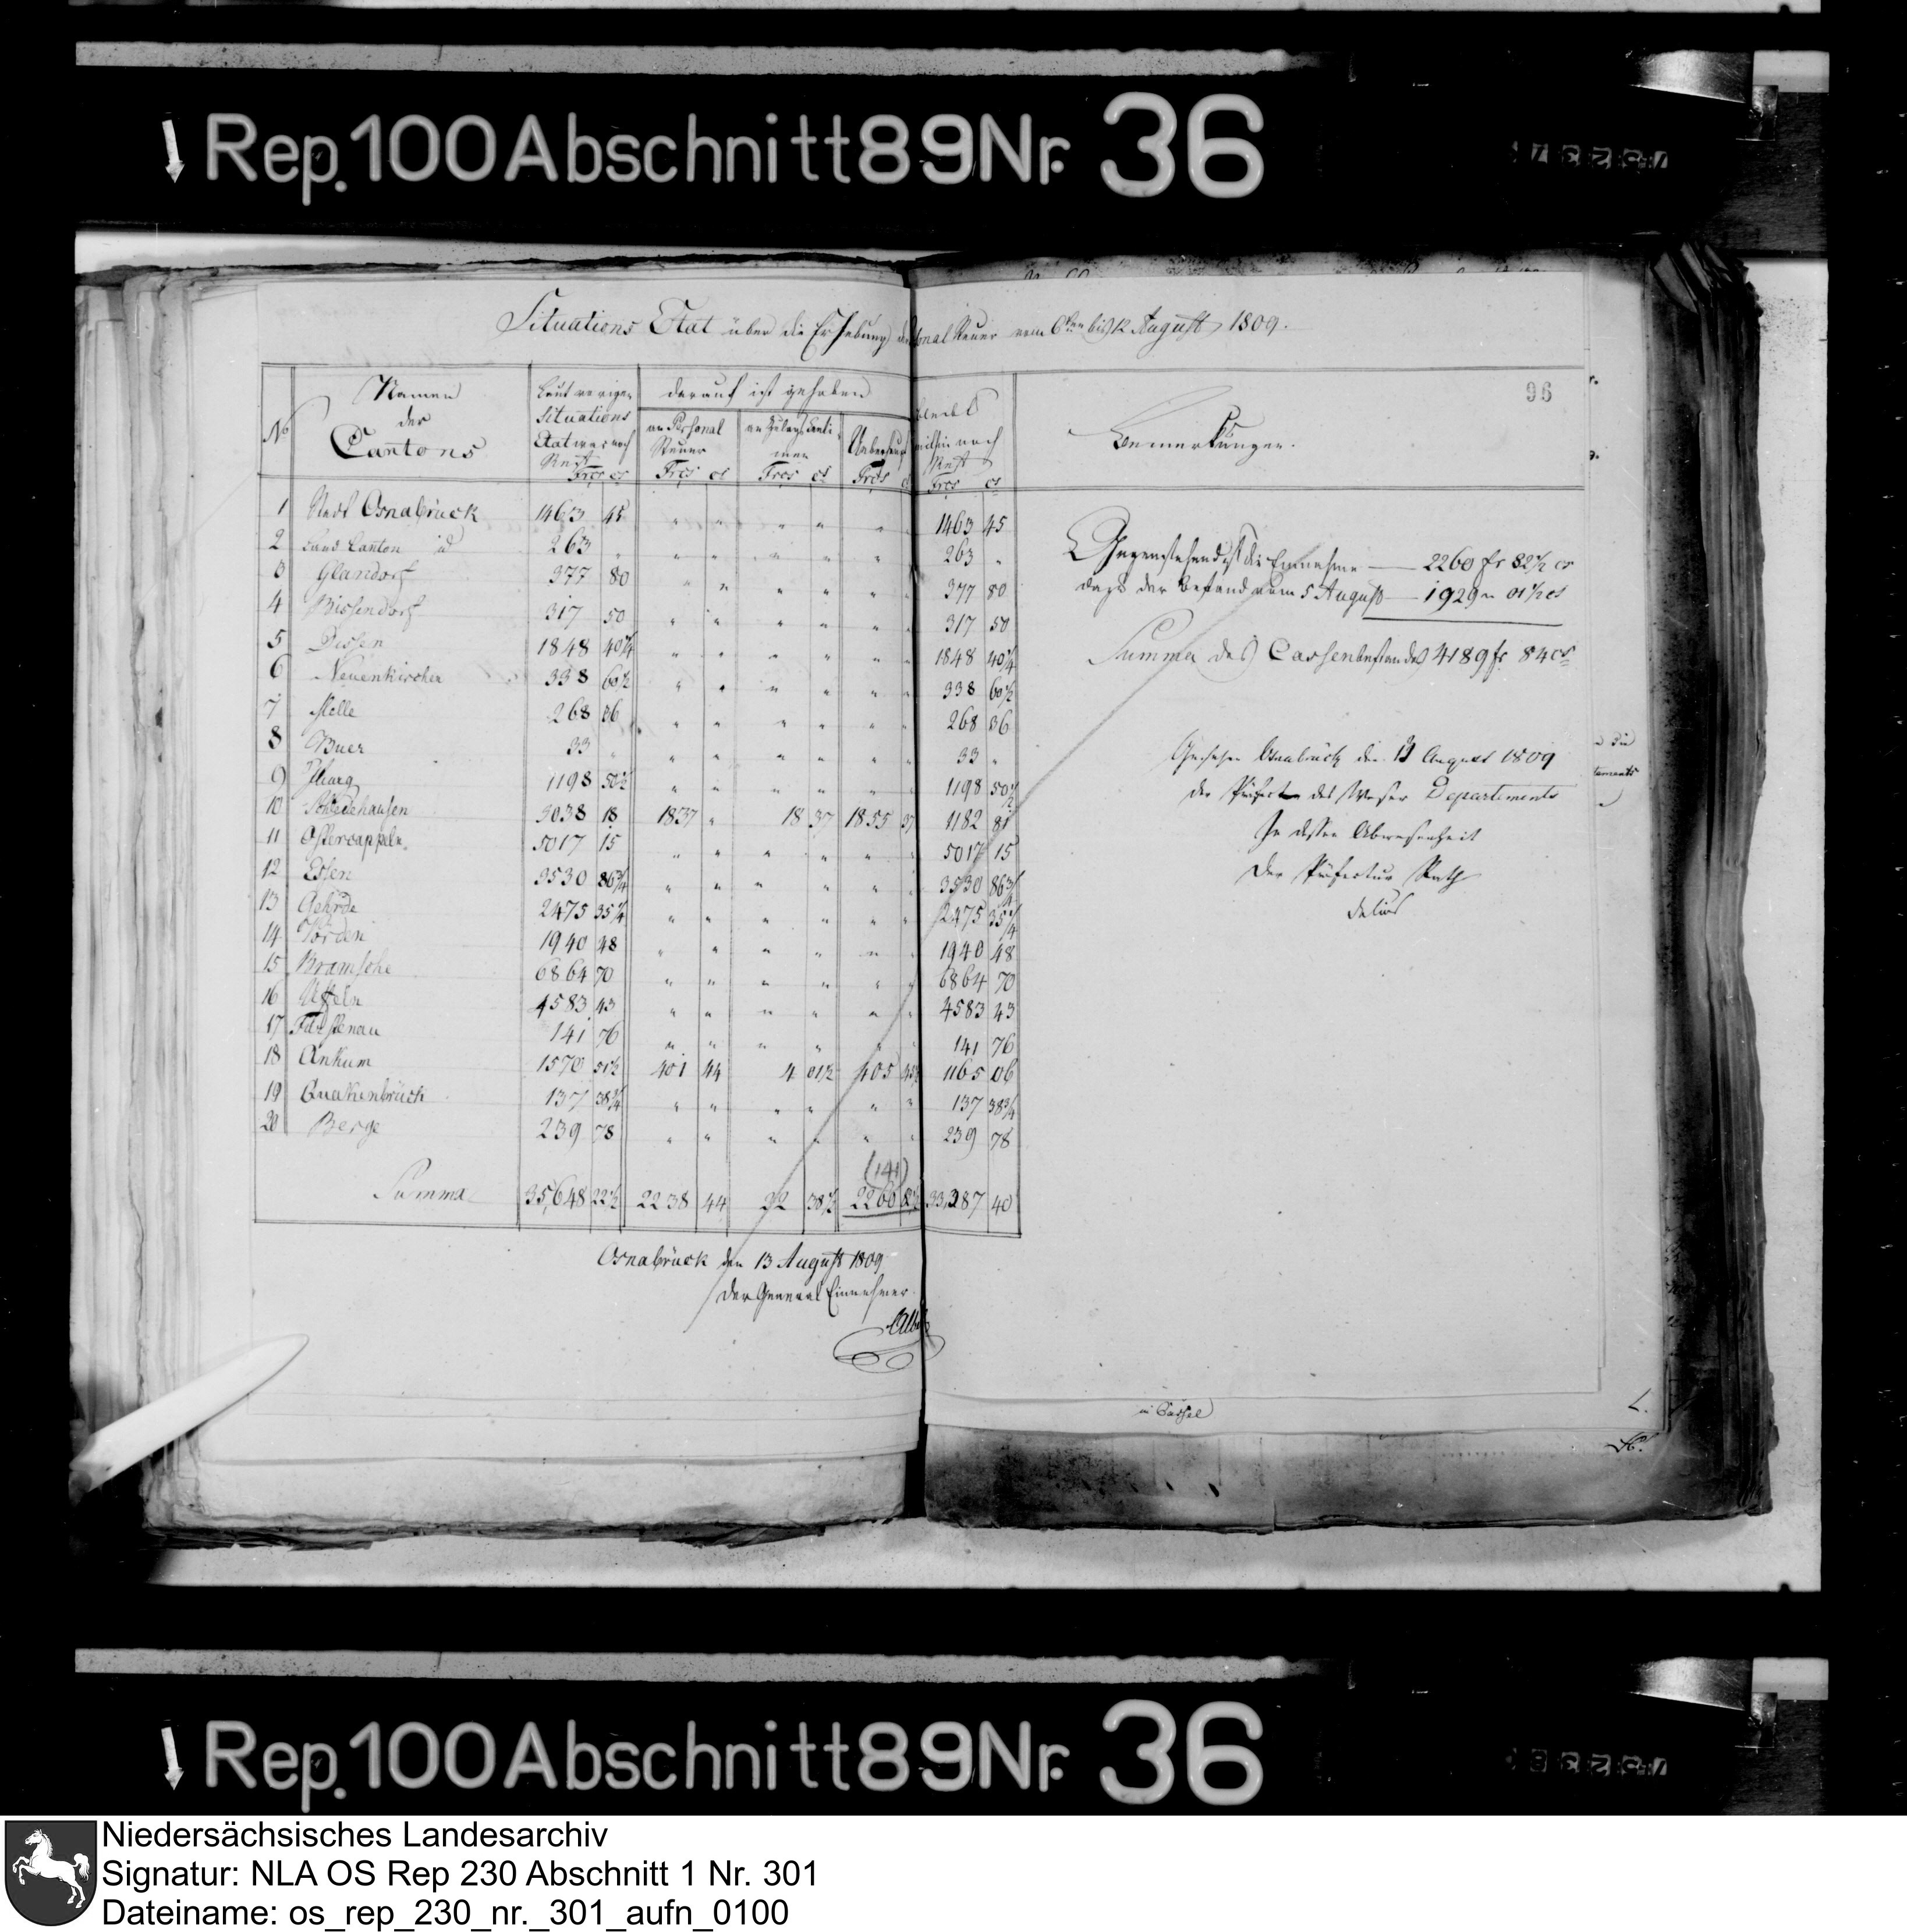 Rep. 100 Abschnitt 89 Nr. 36
Situations Etat über die Erhebung der sonal Steuer vom 6ten bis 12 August 1809.
96
No
Namen
der
Cantons
Laut vorigen
Situations
Etat war noch
Rest
Frcs cs
darauf ist gehoben
an Personal
Steuer
Frcs cs
an Zulags Centi-
men
Frcs cs
Ueberhaupt
Frcs
noch
Rest
Frcs cs
Bemerkungen.
1 Stadt Osnabrück 1463 45 " " " " " 1463 45
2 Land Canton id 263 " " " " " " 263 "
3 Glandorf 377 80 " " " " " " 377 80
4 Bissendorf 317 50 " " " " " " 317 50
5 Dissen 1848 40¼ " " " " " " 1848 40¼
6 Neuenkirchen 338 60½ " " " " " " 338 60½
7 Melle 268 36 " " " " " " 268 36
8 Buer 33 " " " " " " " 33 "
9 Iburg 1198 50½ " " " " " " 1198 50½
10 Schledehausen 3038 18 1837 " 18 37 1855 37 1182 81
11 Ostercappeln 5017 15 " " " " " " 5017 15
12 Essen 3530 86¾ " " " " " " 3530 86¾
13 Gehrde 2475 35¼ " " " " " " 2475 35¼
14 Vörden 1940 48 " " " " " " 1940 48
15 Bramsche 6864 70 " " " " " " 6864 70
16 Uffeln 4583 43 " " " " " " 4583 43
17 Fürstenau 141 76 " " " " " " 141 76
18 Ankum 1570 51½ 401 44 4 01½ 405 45½ 1165 06
19 Quakenbrück 137 38¾ " " " " " " 137 38¾
20 Berge 239 78 " " " " " " 239 78
(141)
Summa 35,648 22½ 2238 44 22 38½ 2260 82½ 33,387 40
Osnabrück den 13 August 1809
Der General Einnehmer
Gegenstehend ist die Einnahme — 2260 fr 82½ cs
dazu der Bestand vom 5 August — 1929 " 01½ cs
Summa des Cassenbestandes 4189 fr 84 cs
Gesehen Osnabrück den August 1809
Der Präfect des Weser Departements
In dessen Abwesenheit
Der Präfectur Rath
Delius
in Cassel
Rep. 100 Abschnitt 89 Nr. 36
Niedersächsisches Landesarchiv
Signatur: NLA OS Rep 230 Abschnitt 1 Nr. 301
Dateiname: os_rep_230_nr._301_aufn_0100